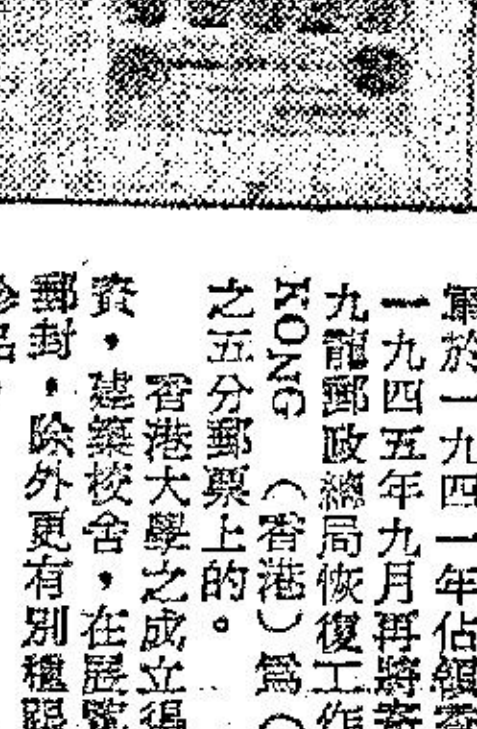 軍於一九四一年佔領香
一九四五年九月再將
九龍郵政總局恢復工作
KONG （香港）爲（
之五分郵票上的。
香港大學之成立得
資，建築校舍，在展覽
郵封，除外更有別種
名，